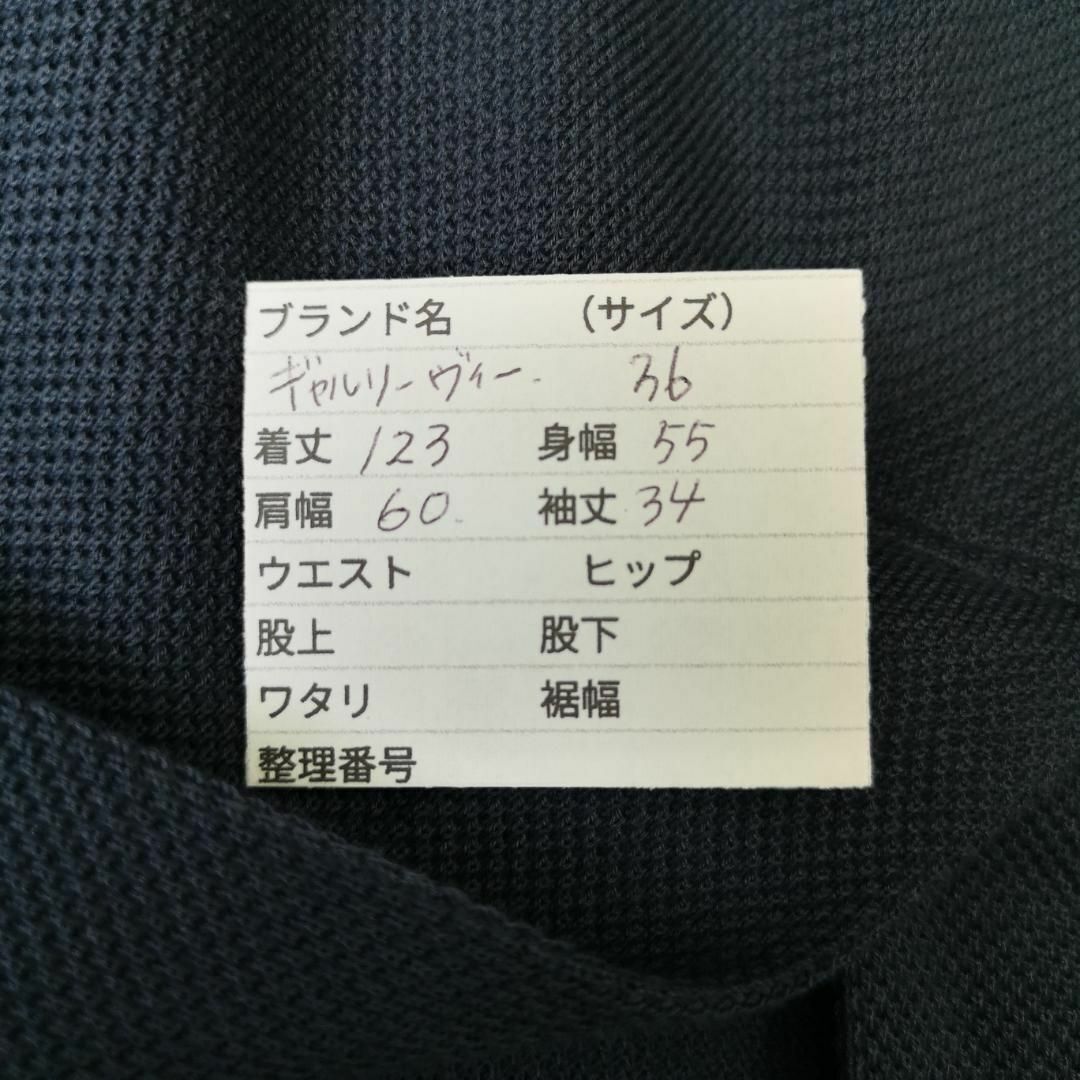 ブランド名 （サイズ）
ギャルリーヴィー. 36
着丈 123 身幅 55
肩幅 60. 袖丈 34
ウエスト ヒップ
股上 股下
ワタリ 裾幅
整理番号